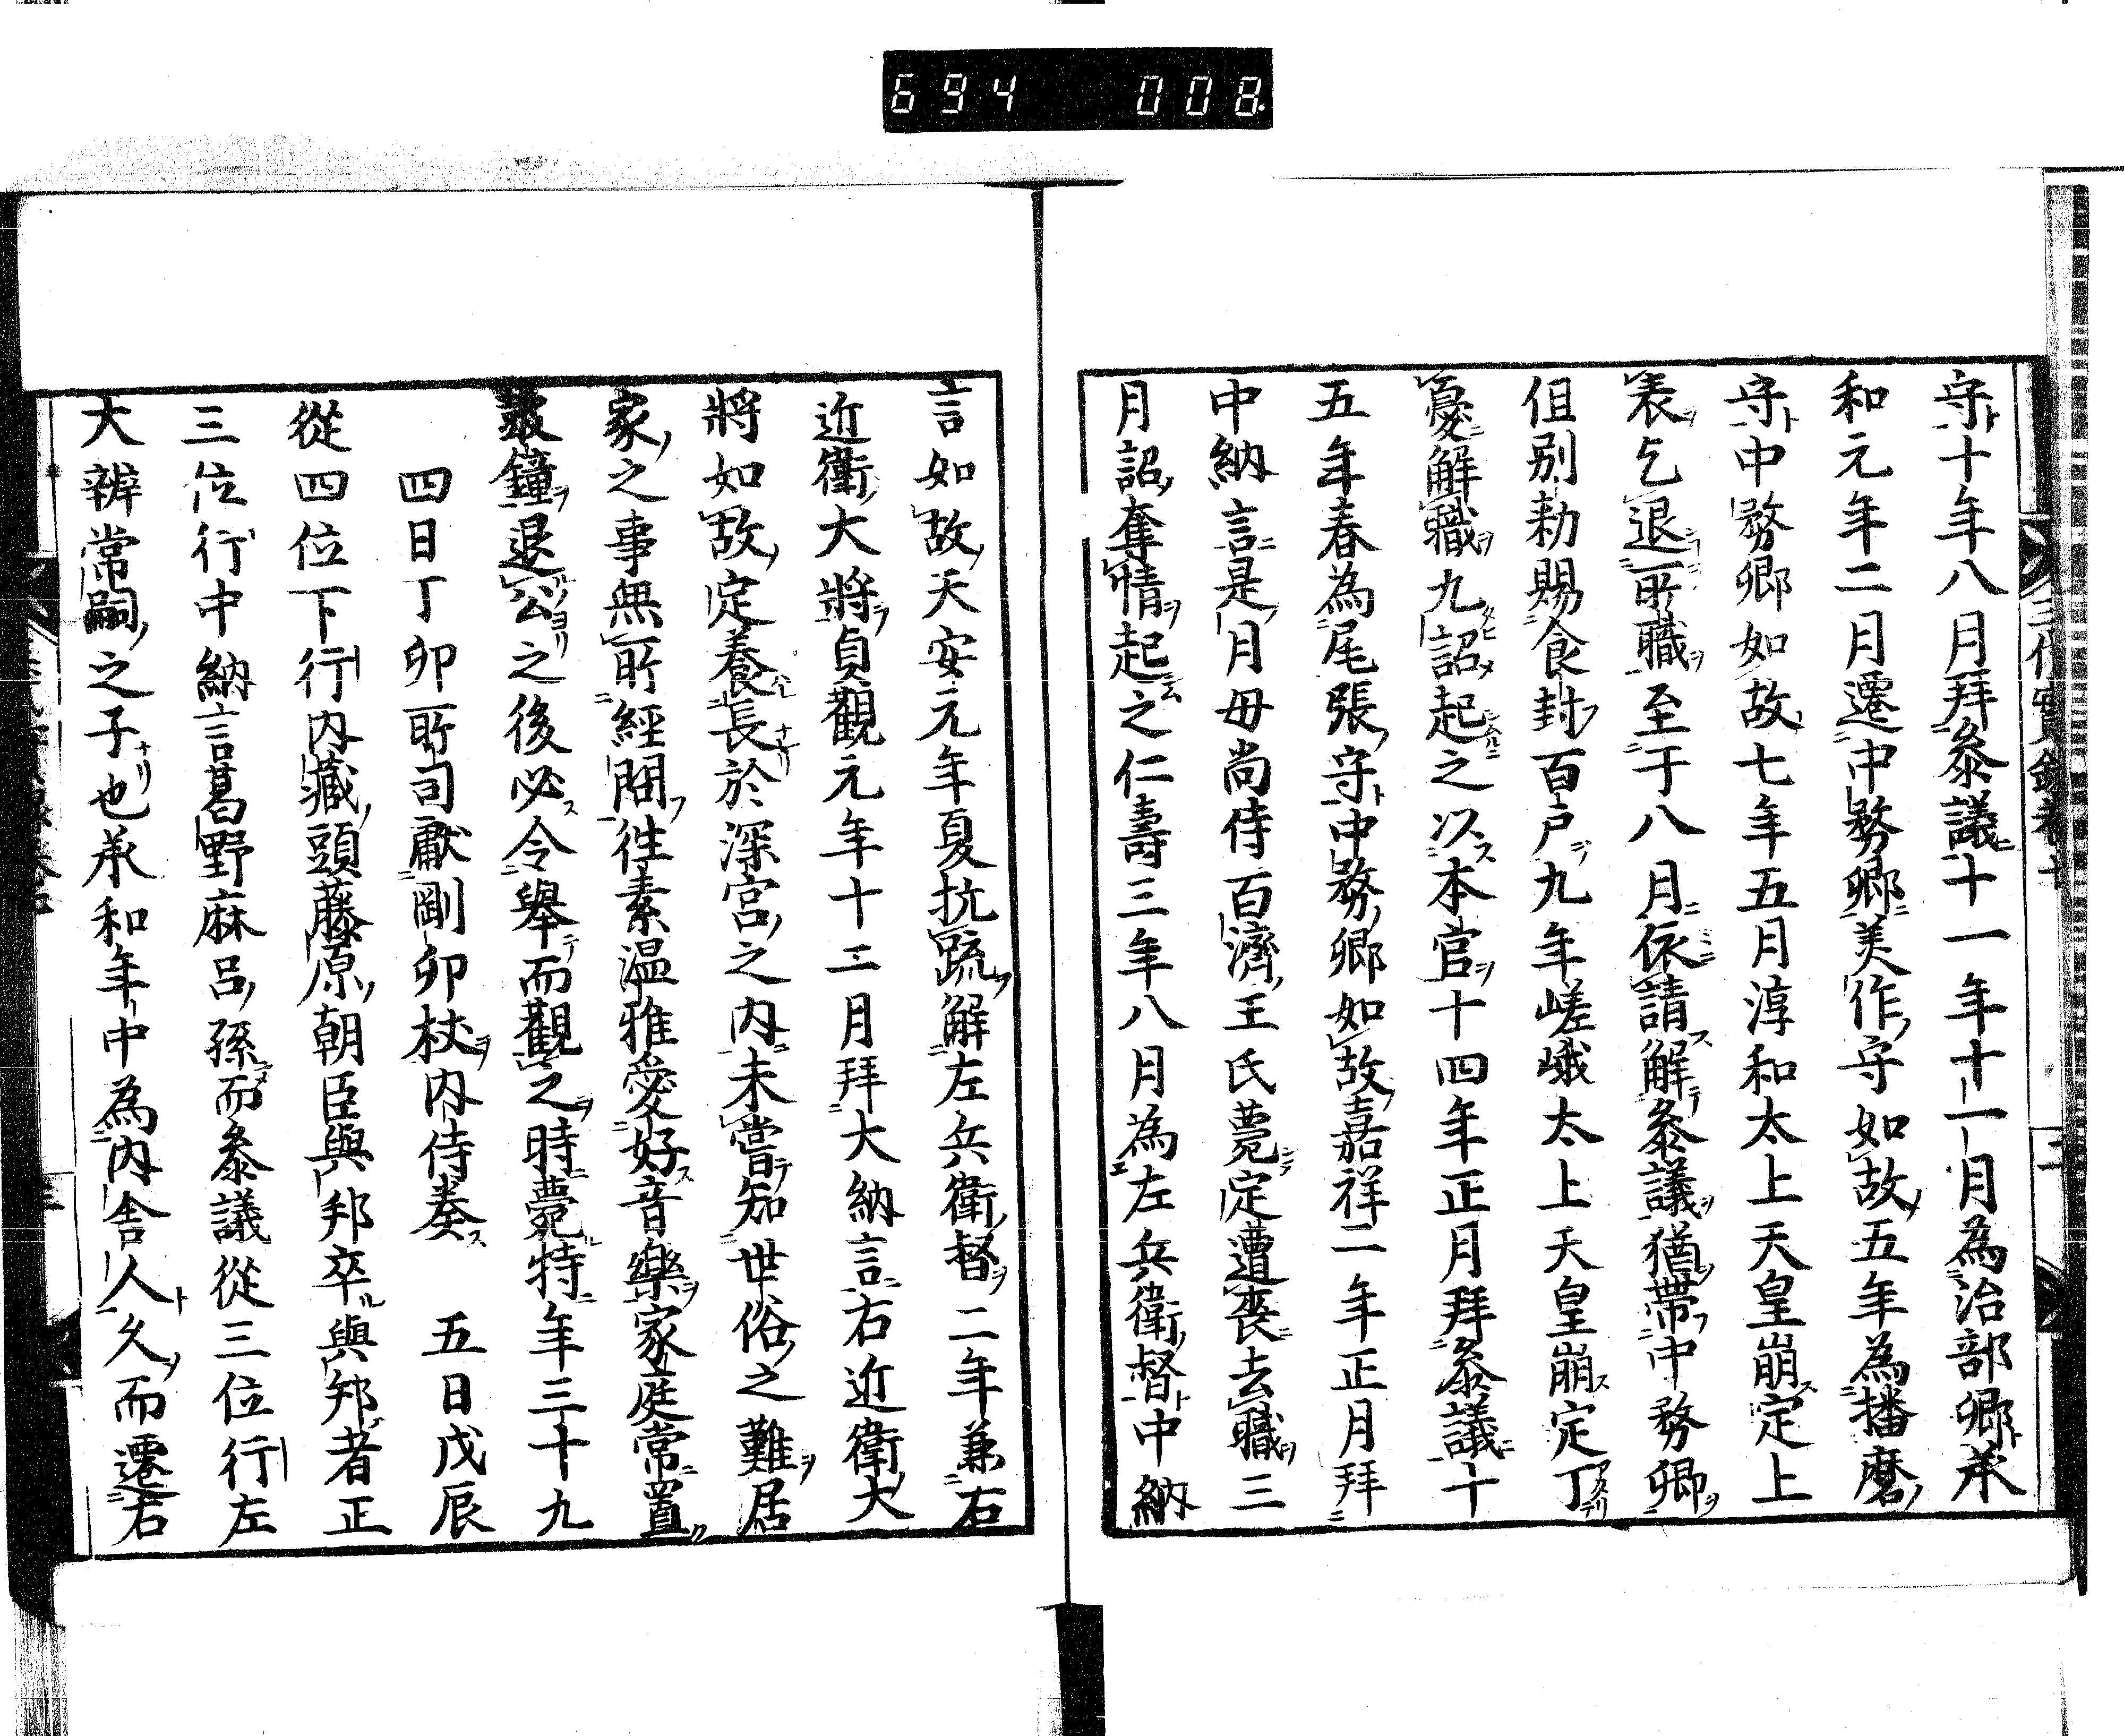 694 008
守十年八月拜叅議十一年十一月為治部卿承
和元年二月遷中務卿美作守如故五年為播磨
守中務卿如故七年五月淳和太上天皇崩定上
表乞退所職至于八月依請解叅議猶帶中務卿
俎別勅賜食封百戶九年嵯峨太上天皇崩定丁
憂解職九詔起之以本官十四年正月拜叅議十
五年春為尾張守中務卿如故嘉祥二年正月拜
中納言是月母尚侍百濟王氏薨定遭喪去職三
月詔奪情起之仁壽三年八月為左兵衛督中納
言如故天安元年夏抗疏解左兵衛督二年兼右
近衛大將貞觀元年十二月拜大納言右近衛大
將如故定養長於深宮之內未嘗知世俗之難居
家之事無所經問徃素温雅愛好音樂家庭常置
鼓鐘退公之後必令舉而觀之時薨特年三十九
四日丁卯所司獻剛卯杖內侍奏　五日戊辰
從四位下行內藏頭藤原朝臣興邦卒興邦者正
三位行中納言葛野麻呂孫而叅議從三位行左
大辨常嗣之子也承和年中為內舍人久而遷右